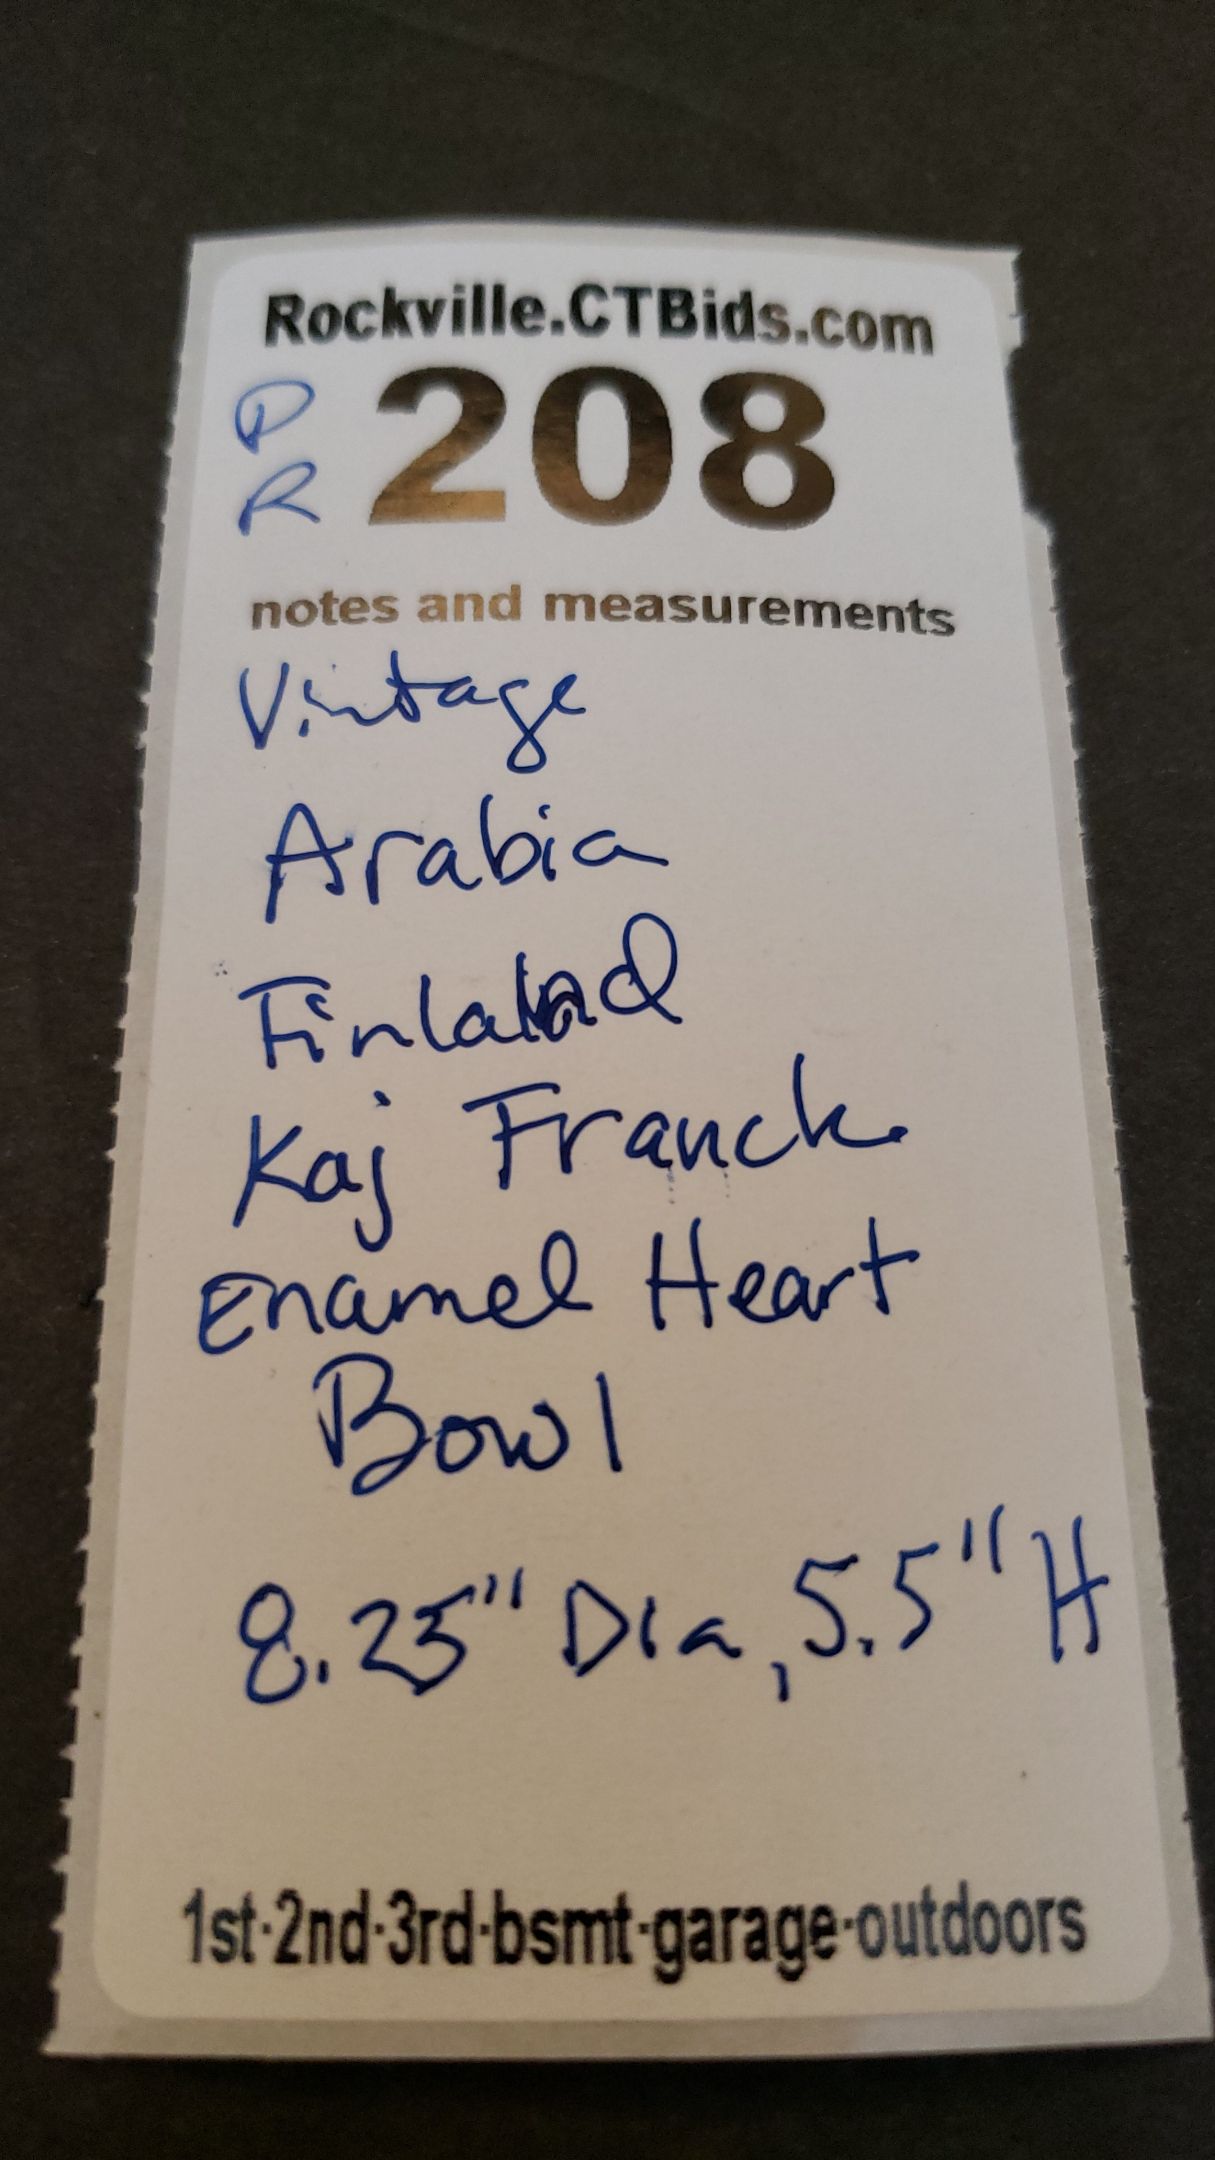 Rockville.CTBids.com
DR 208
notes and measurements
Vintage
Arabia
Finland
Kaj Franck
Enamel Heart
Bowl
8.25" Dia, 5.5" H
1st·2nd·3rd·bsmt·garage·outdoors